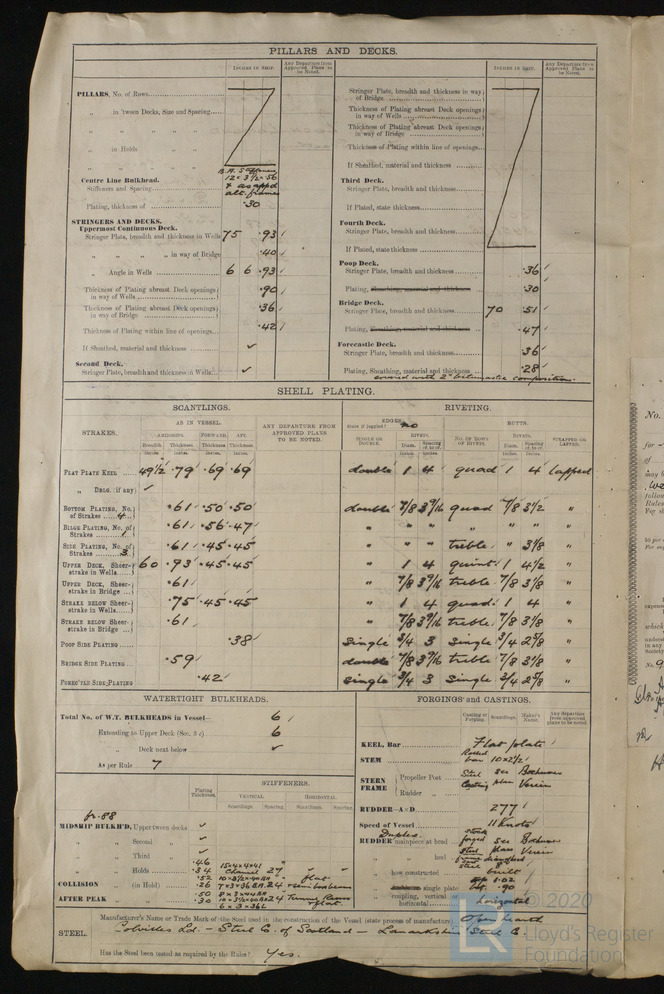 PILLARS AND DECKS.
INCHES IN SHIP.
Any Departure from Approved Plans to be Noted.
PILLARS, No. of Rows
„ in 'tween Decks, Size and Spacing
„ „ „ „
„ in Holds „ „
„ „ „ „
Centre Line Bulkhead.
Stiffeners and Spacing
B.A. Stiffeners
12 × 3½ × .56
& as appd
alt. frames
Plating, thickness of .30
STRINGERS AND DECKS.
Uppermost Continuous Deck.
Stringer Plate, breadth and thickness in Wells 75 .93
„ „ „ „ in way of Bridge .40
„ Angle in Wells 6 6 .93
Thickness of Plating abreast Deck openings in way of Wells .90
Thickness of Plating abreast Deck openings in way of Bridge .36
Thickness of Plating within line of openings .42
If Sheathed, material and thickness ✓
Second Deck.
Stringer Plate, breadth and thickness in Wells ✓
INCHES IN SHIP.
Any Departure from Approved Plans to be Noted.
Stringer Plate, breadth and thickness in way of Bridge
Thickness of Plating abreast Deck openings in way of Wells
Thickness of Plating abreast Deck openings in way of Bridge
Thickness of Plating within line of openings
If Sheathed, material and thickness
Third Deck.
Stringer Plate, breadth and thickness
If Plated, state thickness
Fourth Deck.
Stringer Plate, breadth and thickness
If Plated, state thickness
Poop Deck.
Stringer Plate, breadth and thickness .36
Plating, Sheathing, material and thickness .30
Bridge Deck.
Stringer Plate, breadth and thickness 70 .51
Plating, Sheathing, material and thickness .47
Forecastle Deck.
Stringer Plate, breadth and thickness .36
Plating, Sheathing, material and thickness .28
covered with 2" bitumastic composition.
SHELL PLATING.
SCANTLINGS.
RIVETING.
STRAKES.
AS IN VESSEL.
AMIDSHIPS. FORWARD. AFT.
Breadth. Thickness. Thickness. Thickness.
ANY DEPARTURE FROM APPROVED PLANS TO BE NOTED.
EDGES
State if joggled? no
SINGLE OR DOUBLE.
RIVETS.
Diam. Spacing cr. to cr.
BUTTS.
NO. OF ROWS OF RIVETS.
RIVETS.
Diam. Spacing cr. to cr.
STRAPPED OR LAPPED.
FLAT PLATE KEEL 49½ .79 .69 .69 double 1 4 quad 1 4 lapped
„ DBLG. (if any) ✓
BOTTOM PLATING, No. of Strakes 4 .61 .50 .50 double 7/8 3 9/16 quad 7/8 3½ „
BILGE PLATING, No. of Strakes 1 .61 .56 .47 „ „ „ „ „ „ „
SIDE PLATING, No. of Strakes 3 .61 .45 .45 „ „ „ treble „ 3 1/8 „
UPPER DECK, Sheerstrake in Wells 60 .93 .45 .45 „ 1 4 quint 1 4½ „
UPPER DECK, Sheerstrake in Bridge .61 „ 7/8 3 9/16 treble 7/8 3 1/8 „
STRAKE BELOW Sheerstrake in Wells .75 .45 .45 „ 1 4 quad 1 4 „
STRAKE BELOW Sheerstrake in Bridge .61 „ 7/8 3 9/16 treble 7/8 3 1/8 „
POOP SIDE PLATING .38 Single 3/4 3 Single 3/4 2 5/8 „
BRIDGE SIDE PLATING .59 double 7/8 3 9/16 treble 7/8 3 1/8 „
FORECASTLE SIDE PLATING .42 Single 3/4 3 Single 3/4 2 5/8 „
WATERTIGHT BULKHEADS.
Total No. of W.T. BULKHEADS in Vessel 6
Extending to Upper Deck (Sec. 3 c) 6
„ Deck next below ✓
As per Rule 7
Plating Thickness.
STIFFENERS.
VERTICAL. HORIZONTAL.
Scantlings. Spacing. Scantlings. Spacing.
fr. 88
MIDSHIP BULKH'D, Upper tween decks ✓
„ „ Second „ ✓
„ „ Third „ ✓
„ „ Holds
.46
.34
15×4×4×.41
Channel 27
COLLISION „ (in Hold)
AFTER PEAK „ „
FORGINGS and CASTINGS.
Casting or Forging. Scantlings. Maker's Name. Any departure from approved plans to be noted.
KEEL, Bar Flat plate
STEM Rolled bar 10×2½
STERN FRAME
Propeller Post Steel see Bochumer
Rudder „ Casting plan Verein
RUDDER—A×D 277
Speed of Vessel 11 Knots
Duplex
RUDDER mainpiece at head forged see Bochumer
„ „ heel Verein
„ how constructed built
„ single plate .90
„ coupling, vertical or horizontal horizontal
STEEL.
Manufacturer's Name or Trade Mark of the Steel used in the construction of the Vessel (state process of manufacture) Open hearth
Colvilles Ld. – Steel Co. of Scotland – Lanarkshire Steel Co.
Has the Steel been tested as required by the Rules? Yes.
© 2020
Lloyd's Register
Foundation